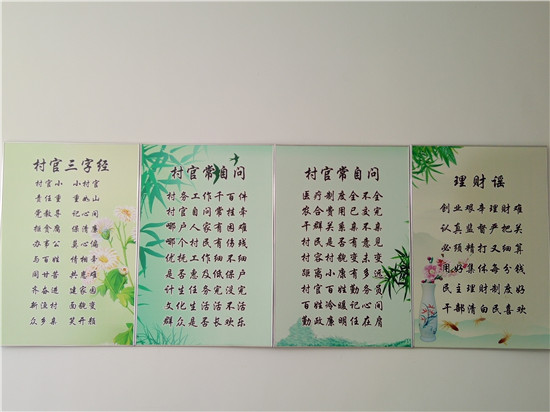 村官三字经
村官小 小村官
责任重 重如山
党教导 记心间
拒贪腐 保清廉
办事公 莫心偏
与百姓 情相牵
同甘苦 共患难
齐奋进 建家园
新农村 面貌变
众乡亲 笑开颜
村官常自问
村务工作千百件
村官自问常挂牵
哪户人家有困难
哪个村民有伤残
优抚工作细不细
是否及低保户
计生任务完没完
文化生活活不活
群众是否长欢乐
村官常自问
医疗制度全不全
农合费用已交完
干群关系亲不亲
村民是否有意见
村容村貌变未变
距离小康有多远
村官百姓勤务员
百姓冷暖记心间
勤政廉明任在肩
理财谣
创业艰辛理财难
认真监督严把关
必须精打又细算
用好集体每分钱
民主理财制度好
干部清白民喜欢